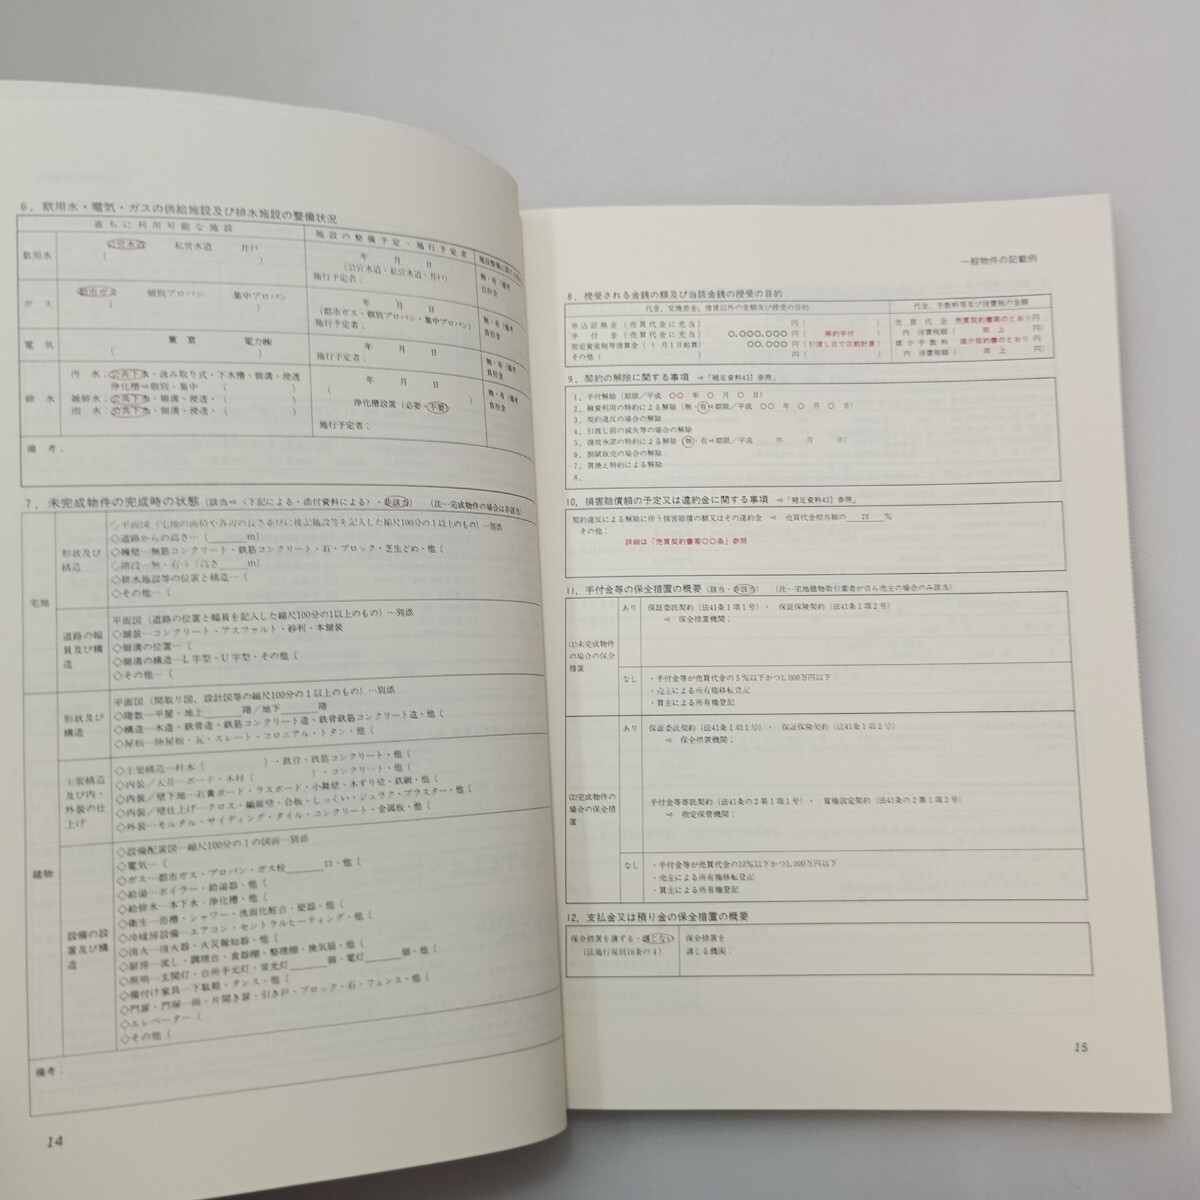 6．飲用水・電気・ガスの供給施設及び排水施設の整備状況
直ちに利用可能な施設
施設の整備予定・施行予定者
飲用水
公営水道　私営水道　井戸
（　　）
年　月　日
（公営水道・私営水道・井戸）
施行予定者：
無・有（備考
負担金
ガス
都市ガス　個別プロパン　集中プロパン
（　　）
年　）月　日
（都市ガス・個別プロパン・集中プロパン）
施行予定者：
無・有（備考
負担金
電気
東京　電力㈱
（　　）
年　月　日
施行予定者：
無・有（備考
負担金
排水
汚水：公共下水・汲み取り式・下水槽・側溝・浸透
浄化槽⇒個別・集中（　　）
雑排水：公共下水・側溝・浸透・（　　）
雨水：公共下水・側溝・浸透・（　　）
年　月　日
（　　）
浄化槽設置（必要・不要）
施行予定者：
無・有（備考
負担金
備考：
7．未完成物件の完成時の状態（該当⇨〈下記による・添付資料による〉・非該当）　（注…完成物件の場合は非該当）
宅地
形状及び構造
◇平面図（宅地の面積や各辺の長さ並びに後記施設等を記入した縮尺100分の1以上のもの）…別添
◇道路からの高さ…（＿＿＿m）
◇擁壁…無筋コンクリート・鉄筋コンクリート・石・ブロック・芝生どめ・他（
◇階段…無・有⇒（高さ＿＿＿m）
◇排水施設等の位置と構造…（
◇その他…（
道路の幅員及び構造
平面図（道路の位置と幅員を記入した縮尺100分の1以上のもの）…別添
◇舗装…コンクリート・アスファルト・砂利・本舗装
◇側溝の位置…（
◇側溝の構造…L字型・U字型・その他（
◇その他…（
建物
形状及び構造
平面図（間取り図、設計図等の縮尺100分の1以上のもの）…別添
◇階数…平屋・地上＿＿＿階／地下＿＿＿階
◇構造…木造・鉄骨造・鉄筋コンクリート造・鉄骨鉄筋コンクリート造・他（
◇屋根…陸屋根・瓦・スレート・コロニアル・トタン・他（
主要構造及び内・外装の仕上げ
◇主要構造…柱木（　　）・鉄骨・鉄筋コンクリート・他（
◇内装／天井…ボード・木材（　　）・コンクリート・他（
◇内装／壁下地…石膏ボード・ラスボード・小舞壁・木ずり壁・鉄網・他（
◇内装／壁仕上げ…クロス・繊維壁・合板・しっくい・ジュラク・プラスター・他（
◇外装…モルタル・サイディング・タイル・コンクリート・金属板・他（
設備の設置及び構造
◇設備配置図…縮尺100分の1の図面…別添
◇電気…（
◇ガス…都市ガス・プロパン・ガス栓＿＿＿口・他（
◇給湯…ボイラー・給湯器・他（
◇給排水…本下水・浄化槽・他（
◇衛生…浴槽・シャワー・洗面化粧台・便器・他（
◇冷暖房設備…エアコン・セントラルヒーティング・他（
◇消火…消火器・火災報知器・他（
◇厨房…流し・調理台・食器棚・整理棚・換気扇・他（
◇照明…玄関灯・台所手元灯・蛍光灯＿＿＿個・電灯＿＿＿個・他（
◇備付け家具…下駄箱・タンス・他（
◇門扉・門塀…両・片開き扉・引き戸・ブロック・石・フェンス・他（
◇エレベーター（
◇その他（
備考：
14
一般物件の記載例
8．授受される金銭の額及び当該金銭の授受の目的
代金、交換差金、借賃以外の金額及び授受の目的
代金、手数料等及び消費税の金額
申込証拠金（売買代金に充当）　円（　　）
手付金（売買代金に充当）　0,000,000円（　解約手付　）
固定資産税等清算金（1月1日起算）　00,000円（引渡し日で日割計算）
その他（　　）　円（　　）
売買代金　売買契約書案のとおり円
内　消費税額（　同上　円）
媒介手数料　媒介契約書のとおり円
内　消費税額（　同上　円）
9．契約の解除に関する事項　⇨「補足資料43」参照
1．手付解除（期限／平成　○○　年　○　月　○　日）
2．融資利用の特約による解除（無・有⇒期限／平成　○○　年　○　月　○　日）
3．契約違反の場合の解除
4．引渡し前の滅失等の場合の解除
5．譲渡承諾の特約による解除（無・有⇒期限／平成　年　月　日）
6．割賦販売の場合の解除
7．買換え特約による解除
8．
10．損害賠償額の予定又は違約金に関する事項　⇨「補足資料43」参照
契約違反による解除に伴う損害賠償の額又はその違約金　⇒　売買代金相当額の　20　％
その他：
詳細は「売買契約書案○○条」参照
11．手付金等の保全措置の概要（該当・非該当）　（注…宅地建物取引業者が自ら売主の場合のみ該当）
(1)未完成物件の場合の保全措置
あり
保証委託契約（法41条1項1号）・　保証保険契約（法41条1項2号）
⇒　保全措置機関：
なし
・手付金等が売買代金の5％以下かつ1,000万円以下
・売主による所有権移転登記
・買主による所有権登記
(2)完成物件の場合の保全措置
あり
保証委託契約（法41条1項1号）・　保証保険契約（法41条1項2号）
⇒　保全措置機関：
手付金等寄託契約（法41条の2第1項1号）・　質権設定契約（法41条の2第1項2号）
⇒　指定保管機関：
なし
・手付金等が売買代金の10％以下かつ1,000万円以下
・売主による所有権移転登記
・買主による所有権登記
12．支払金又は預り金の保全措置の概要
保全措置を講ずる・講じない
（法施行規則16条の4）
保全措置を
講じる機関：
15